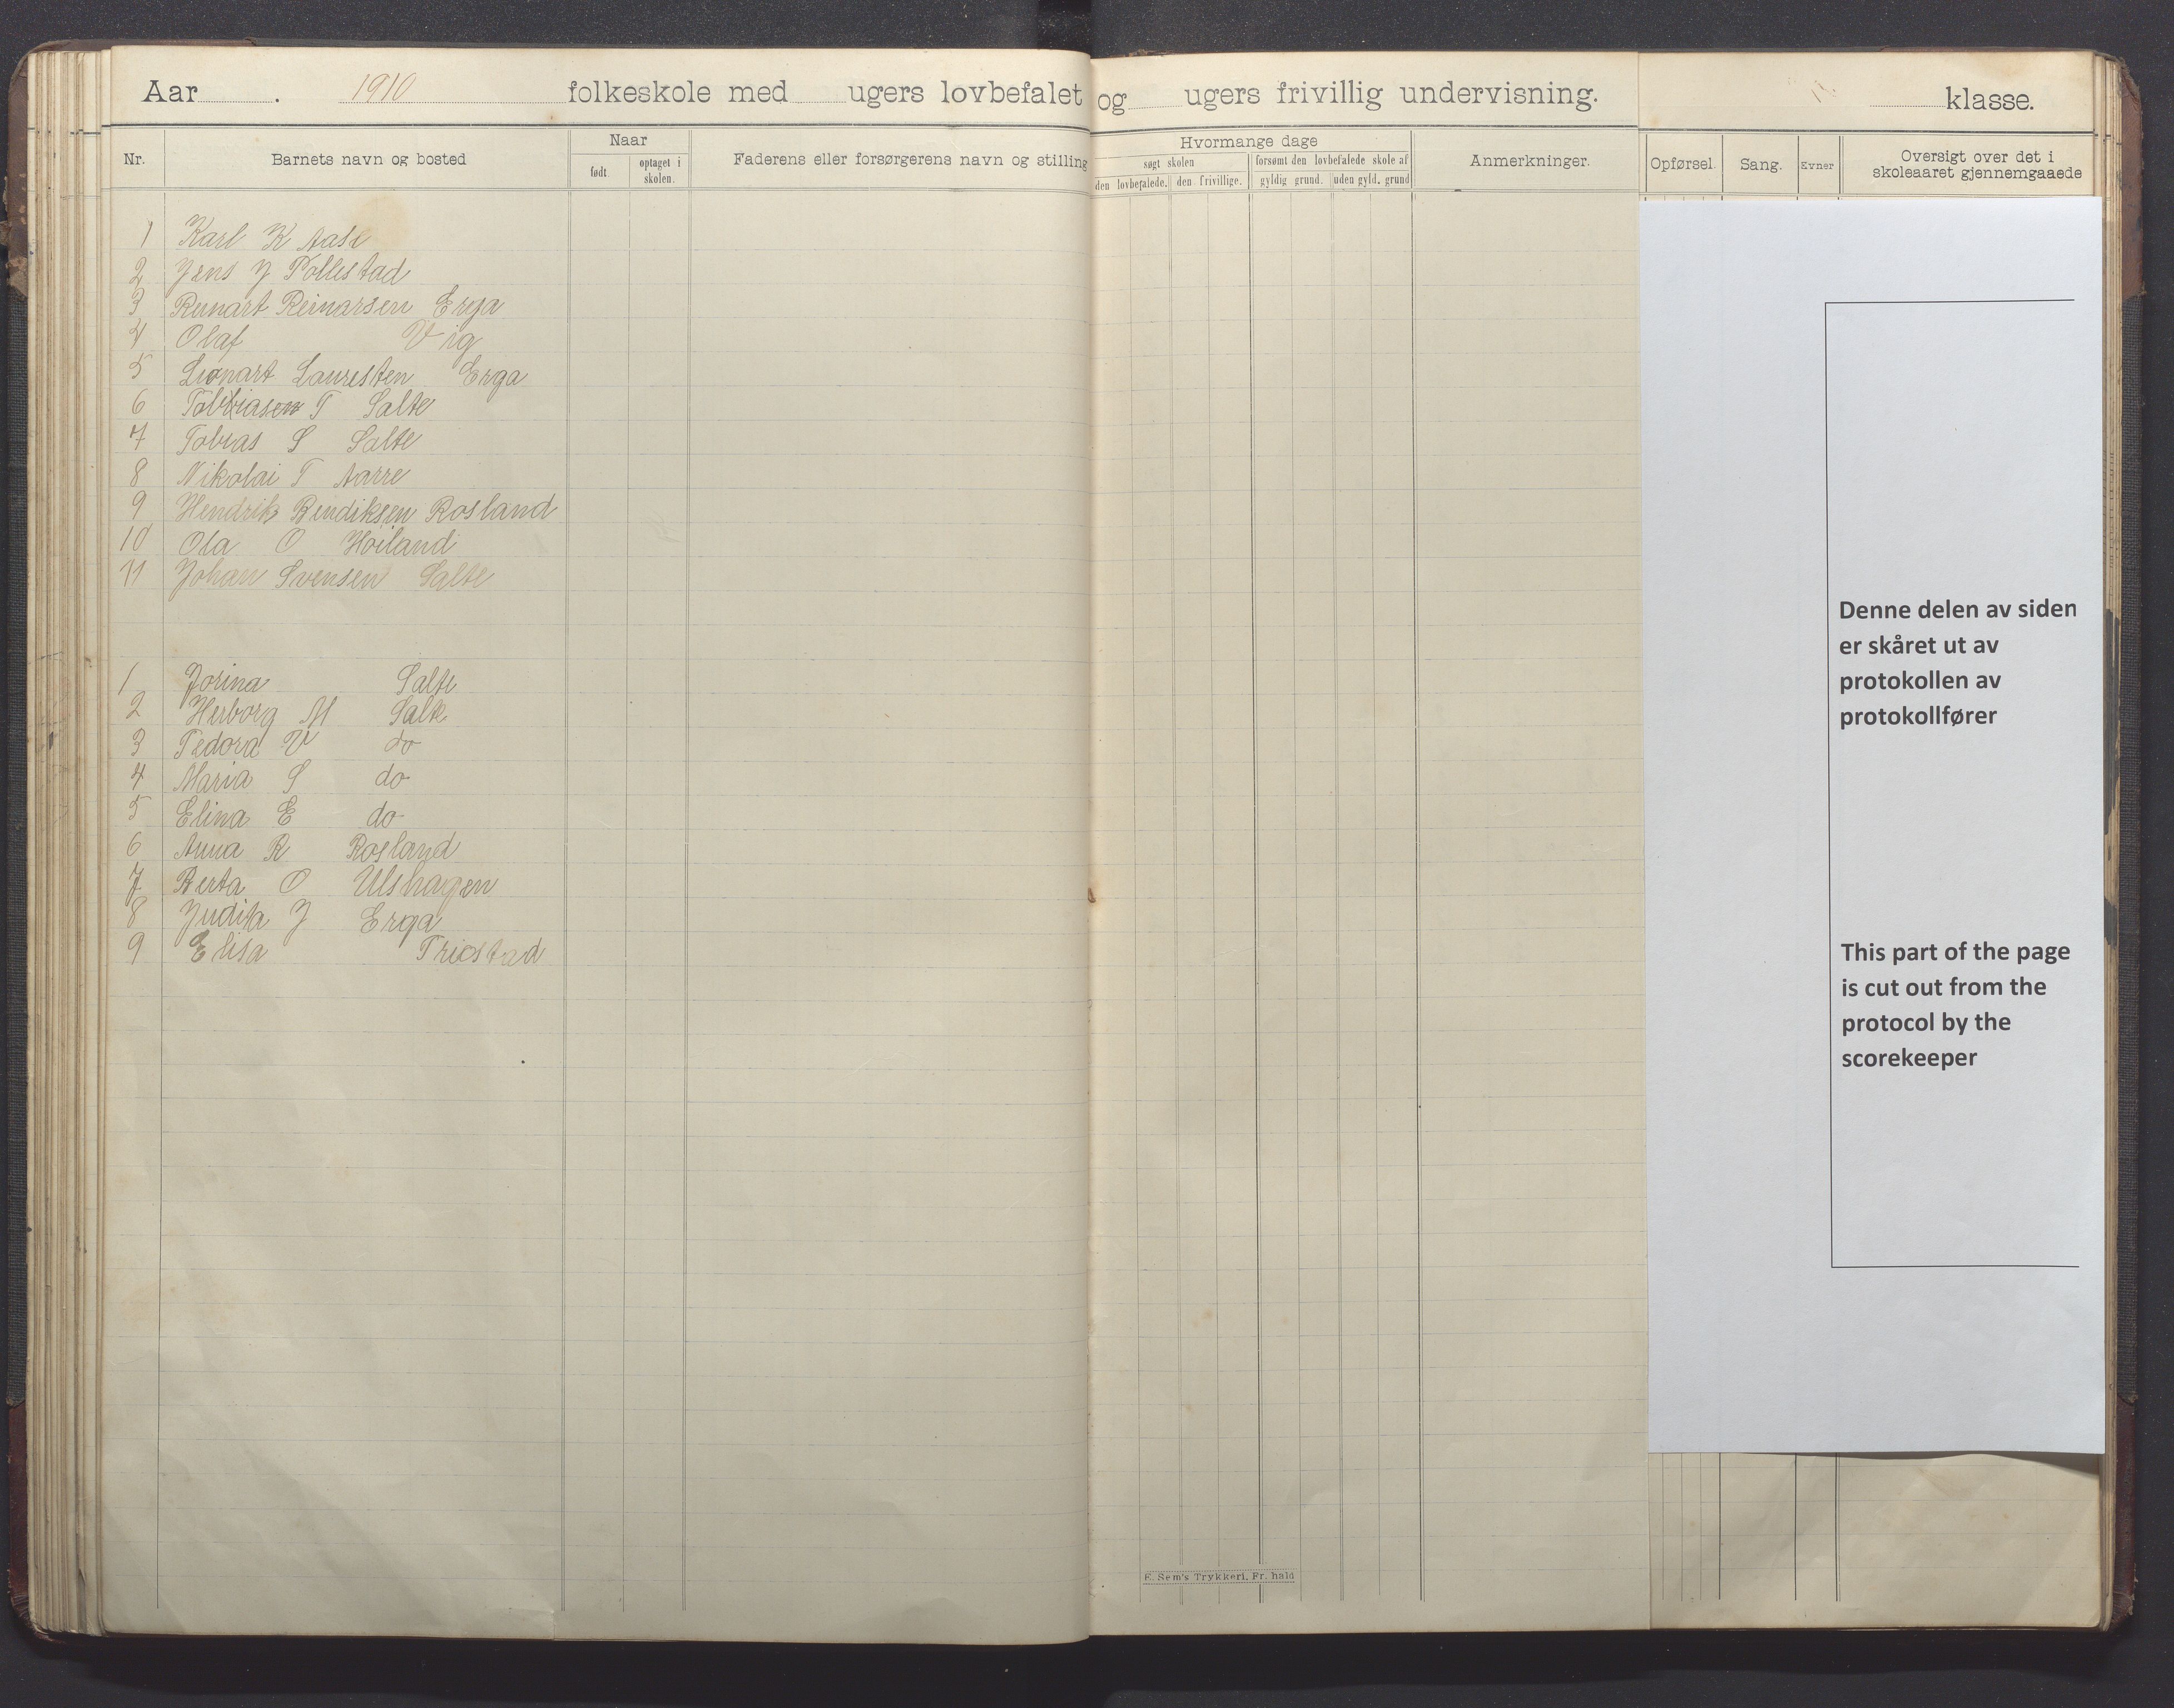 Aar . 1910 folkeskole med ugers lovbefalet og ugers frivillig undervisning. klasse.
Nr. Barnets navn og bosted
Naar
født. optaget i skolen.
Faderens eller forsørgerens navn og stilling
Hvormange dage
søgt skolen forsømt den lovbefalede skole af
den lovbefalede. den frivillige. gyldig grund. uden gyld. grund
Anmerkninger.
Opførsel. Sang. Evner
Oversigt over det i
skoleaaret gjennemgaaede
1 Karl K Aase
2 Jens J Pollestad
3 Reinart Reinarsen Erga
4 Olaf Vig
5 Lenart Lauresten Erga
6 Tobiasen T Salte
7 Tobias S Salte
8 Nikolai T Aarre
9 Hendrik Bendiksen Rosland
10 Ola O Høiland
11 Johan Svensen Salte
1 Jorina Salte
2 Herborg M Salte
3 Tedora V do
4 Maria S do
5 Elina E do
6 Anna R Rosland
7 Berta O Ulshagen
8 Judita J Erga
9 Elisa Triostad
E. Sem's Trykkeri, Fr. hald
Denne delen av siden
er skåret ut av
protokollen av
protokollfører
This part of the page
is cut out from the
protocol by the
scorekeeper